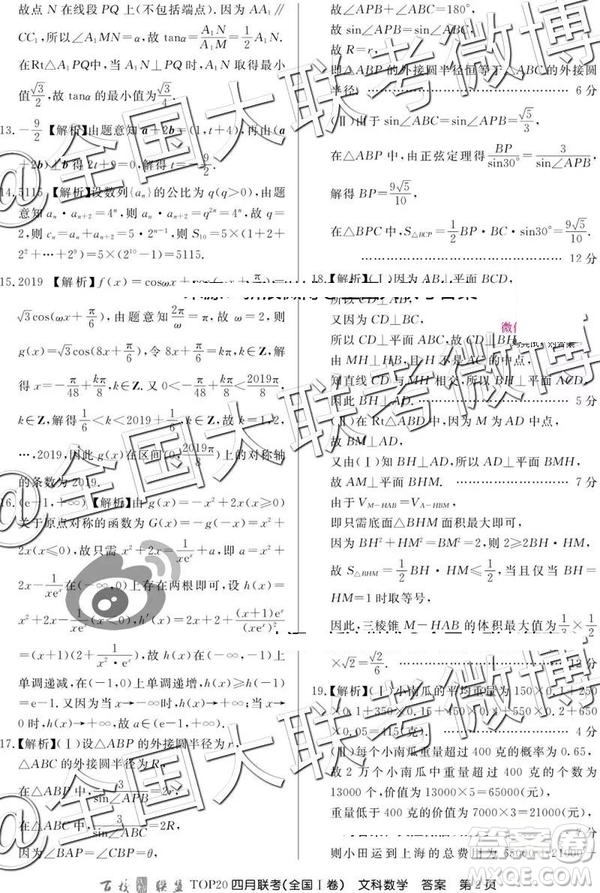 故点 N 在线段 PQ 上(不包括端点). 因为 AA₁∥
CC₁, 所以∠A₁MN=α, 故 tanα=A₁N/A₁M=A₁N/1/2.
在Rt△A₁PQ中, 当 A₁N⊥PQ 时, A₁N 取得最小
值√3/2, 故 tanα 的最小值为√3.
13. -9/2 【解析】由题意知 a+2b=(1,t+4), 再由(a
+2b)⊥b 得 2t+9=0, 解得
14. 5115 【解析】设数列{aₙ}的公比为 q(q>0), 由题
意知 aₙ·aₙ₊₂=4ⁿ, 则 aₙ·aₙ₊₂=q²ⁿ=4ⁿ, 故 q=
2, 则 cₙ=aₙ+aₙ₊₂=5·2ⁿ⁻¹, 则 S₁₀=5×(1+2+
2²+…+2⁹)=5×(2¹⁰-1)=5115.
15. 2019 【解析】f(x)=cosωx+cos(ωx+π/3)=
√3cos(ωx+π/6), 由题意知2π/ω=π, 故ω=2, 则
g(x)=√3cos(8x+π/6), 令 8x+π/6=kπ, k∈Z, 解
得 x=-π/48+kπ/8, k∈Z, 令 0<-π/48+kπ/8<2019π/8,
k∈Z, 解得1/6<k<2019+1/6, k∈Z, 故 k=1,2,
…,2019, 因此 g(x)在区间(0,2019π/8)上的对称轴
的条数为 2019.
16. (e-1,+∞) 【解析】由 g(x)=-x²+2x(x≥0)
关于原点对称的函数为 G(x)=x²+
2x(x≤0), 故只需 x²+2x=1/xeˣ+a, 即 a=x²+
2x-1/xeˣ在(-∞,0)上存在两根即可, 设 h(x)=
x²+2x-1/xeˣ(x<0), h′(x)=2(x+1)+(x+1)eˣ/(xeˣ)²
=(x+1)(2+1/x²·eˣ), 故 h(x)在(-∞,-1)上
单调递减, 在(-1,0)上单调递增, h(x)≥h(-1)
=e-1. 又因为当 x→-∞时, h(x)→+∞, 当 x→
0时, h(x)→+∞, 故 a>e-1.
17.【解析】(Ⅰ)设△ABP 的外接圆半径为 r,
△ABC 的外接圆半径为 R,
在△ABP 中, 3/sin∠APB=2r,
在△ABC 中, 3/sin∠ABC=2R,
因为∠BAP=∠BAC, AP∥BC,
故∠APB+∠ABC=180°,
故 sin∠APB=sin∠ABC,
故 R=r,
即△ABP 的外接圆半径恒等于△ABC 的外接圆
半径. ………… 6分
(Ⅱ)由于 sin∠ABC=sin∠APB=√5/3,
在△ABP 中, 由正弦定理得BP/sin30°=3/sin∠APB,
解得 BP=9√5/10,
在△BPC 中, S△BCP=1/2BP·BC·sin30°=9√5/10.
………… 12分
18.【解析】(Ⅰ)因为 AB⊥平面 BCD,
所以 CD⊥AB,
又因为 CD⊥BC,
所以 CD⊥平面 ABC, 故 CD⊥BH,
由 MH⊥HB, 且 H 不是 AC 的中点,
知直线 CD 与 MH 相交, 所以 BH⊥平面 ACD,
因此 BH⊥AD. ………… 5分
(Ⅱ)在 Rt△ABD 中, 因为 M 为 AD 中点,
故 BM⊥AD,
又由(Ⅰ)知 BH⊥AD, 所以 AD⊥平面 BMH,
故 AM⊥平面 BHM. ………… 7分
由于 V_M-HAB=V_A-HBM,
即只需底面 BHM 面积最大即可,
因为 BH²+HM²=BM²=2, 则 2≥2BH·HM,
故 S△BHM=1/2BH·HM≤1/2, 当且仅当 BH=HM
=1时取等号,
因此, 三棱锥 M-HAB 的体积最大值为1/3×1/2
×√2=√2/6. ………… 12分
19.【解析】(Ⅰ)小南瓜的平均重量为150×0.1+250
×0.1+350×0.15+450×0.4+550×0.2+650
×0.05=415(克). ………… 4分
(Ⅱ)每个小南瓜重量超过 400 克的概率为 0.65,
故 2 万个小南瓜中重量超过 400 克的个数为
13000 个, 价值为 13000×5=65000(元),
重量低于 400 克的价值为 7000×3=21000(元),
………… 8分
则小田运到上海总价值为65000+21000=86000
百校联盟 TOP20 四月联考(全国Ⅰ卷) 文科数学 答案 第2页
@全国大联考微博
@全国大联考微博
@全国大联考微博